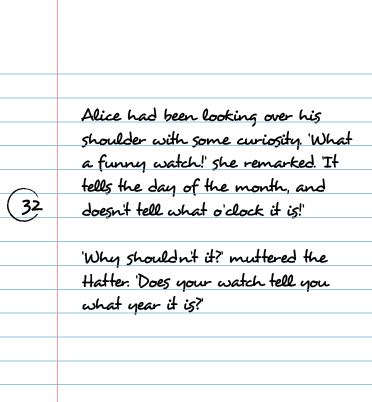 Alice had been looking over his
shoulder with some curiosity. 'What
a funny watch!' she remarked. 'It
tells the day of the month, and
32
doesn't tell what o'clock it is!'
'Why shouldn't it?' muttered the
Hatter. 'Does your watch tell you
what year it is?'